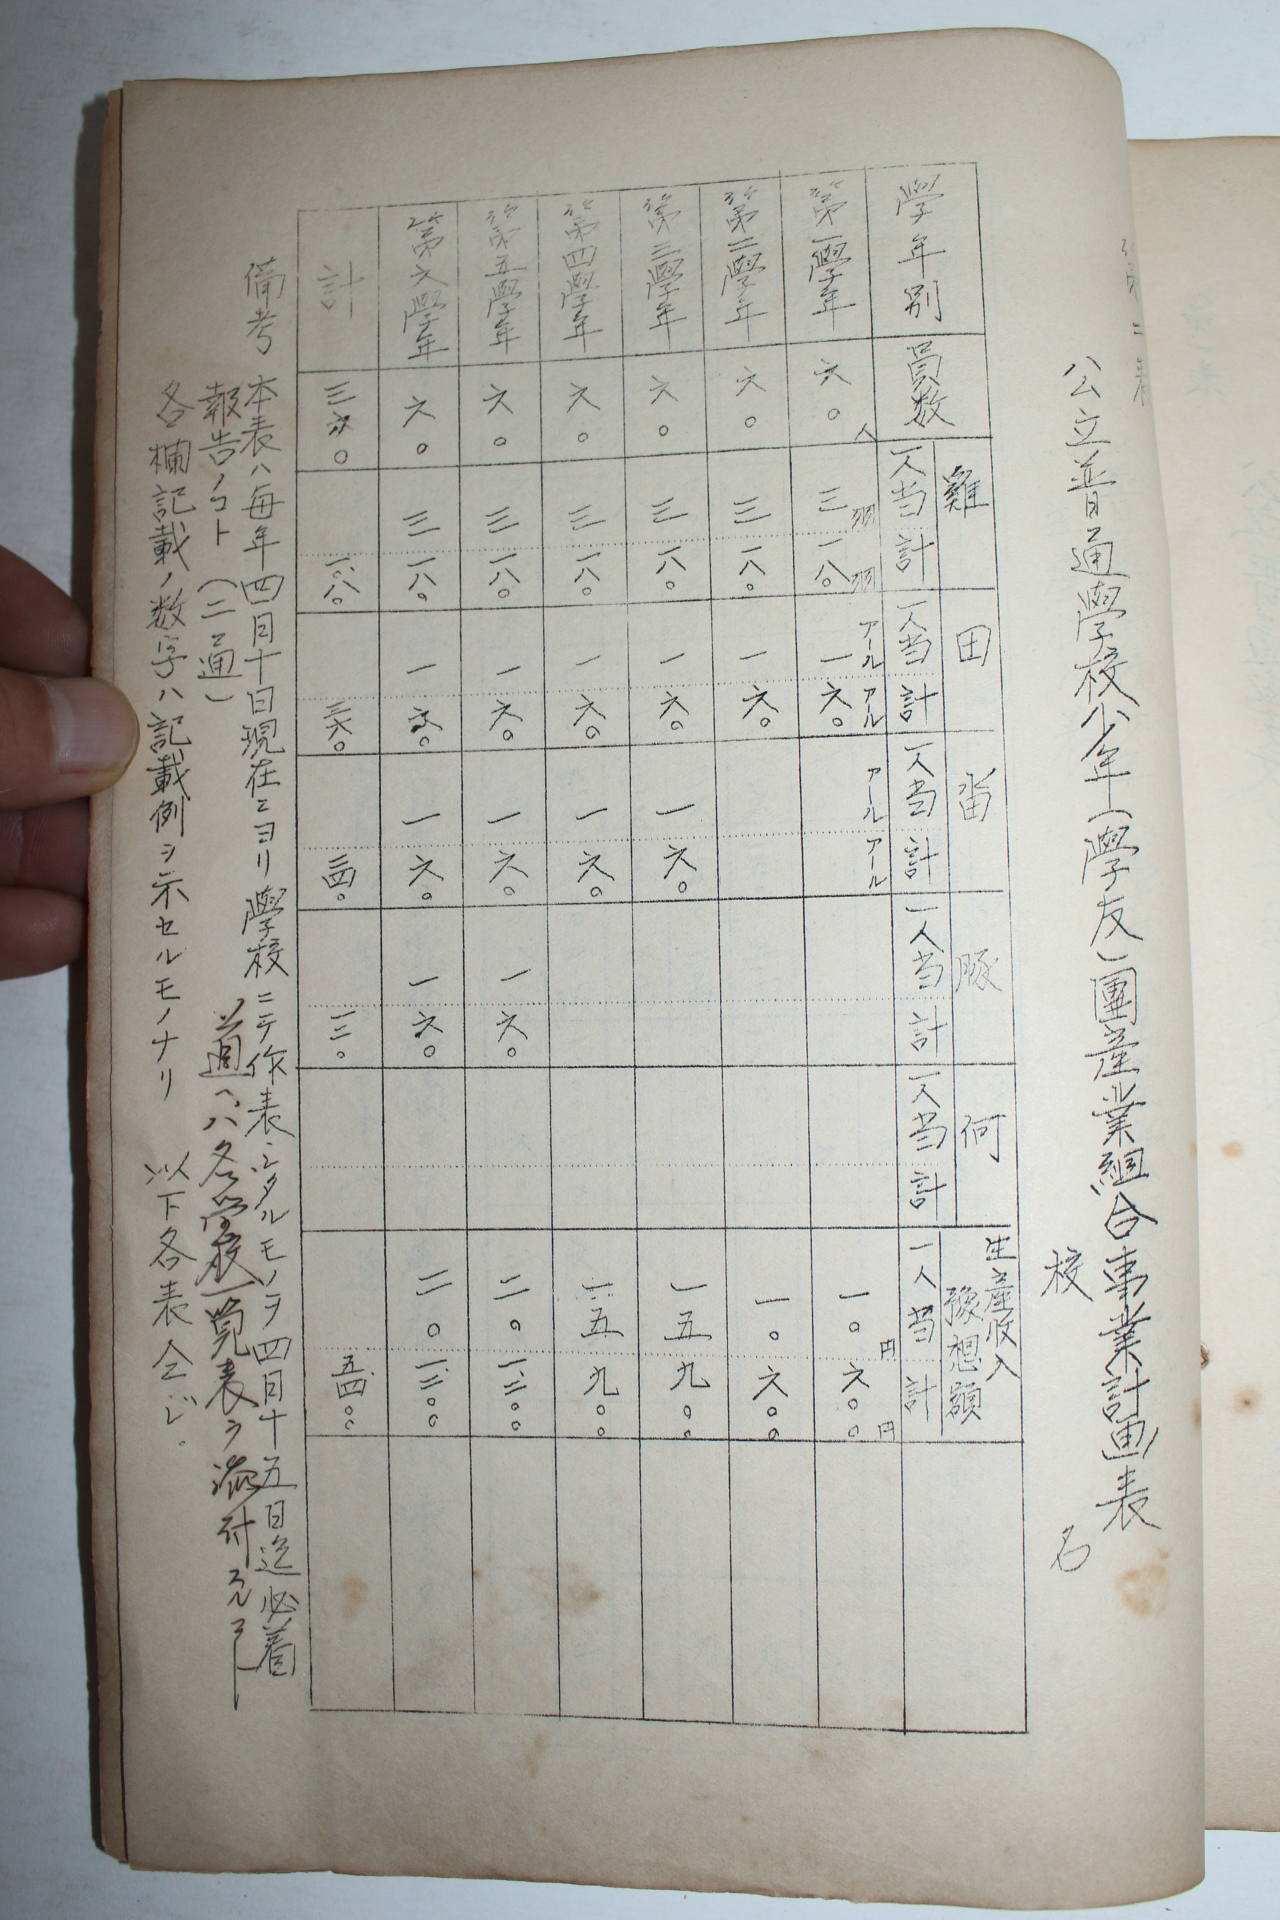 第二表
公立普通學校少年(學友)團産業組合事業計画表
校 名
學年別 員数 雞 一人当 計 田 一人当 計 畓 一人当 計 豚 一人当 計 何 一人当 計 生産收入豫想額 一人当 計
第一學年 六〇人 三羽 一八〇羽 一アール 六〇アール アール アール 一〇円 六〇〇円
第二學年 六〇 三 一八〇 一 六〇 一〇 六〇〇
第三學年 六〇 三 一八〇 一 六〇 一 六〇 一五 九〇〇
第四學年 六〇 三 一八〇 一 六〇 一 六〇 一五 九〇〇
第五學年 六〇 三 一八〇 一 六〇 一 六〇 一 六〇 二〇 一二〇〇
第六學年 六〇 三 一八〇 一 六〇 一 六〇 一 六〇 二〇 一二〇〇
計 三六〇 一〇八〇 三六〇 二四〇 一二〇 五四〇〇
備考 本表ハ毎年四月十日現在ニヨリ學校ニテ作表シタルモノヲ四月十五日迄必着
報告ノコト(二通) 一通ヘハ各学校一覧表ヲ添付スルコト
各欄記載ノ数字ハ記載例ヲ示セルモノナリ 以下各表仝ジ.